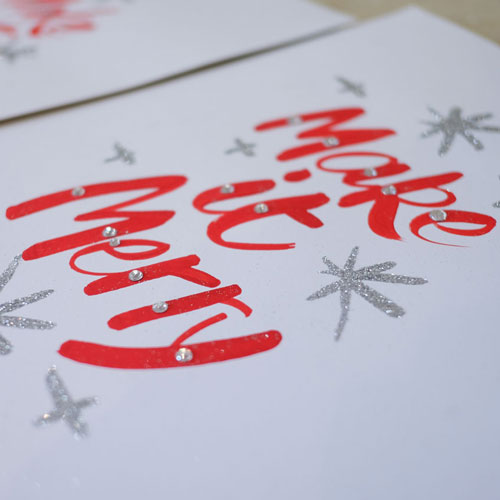 Make
it
Merry